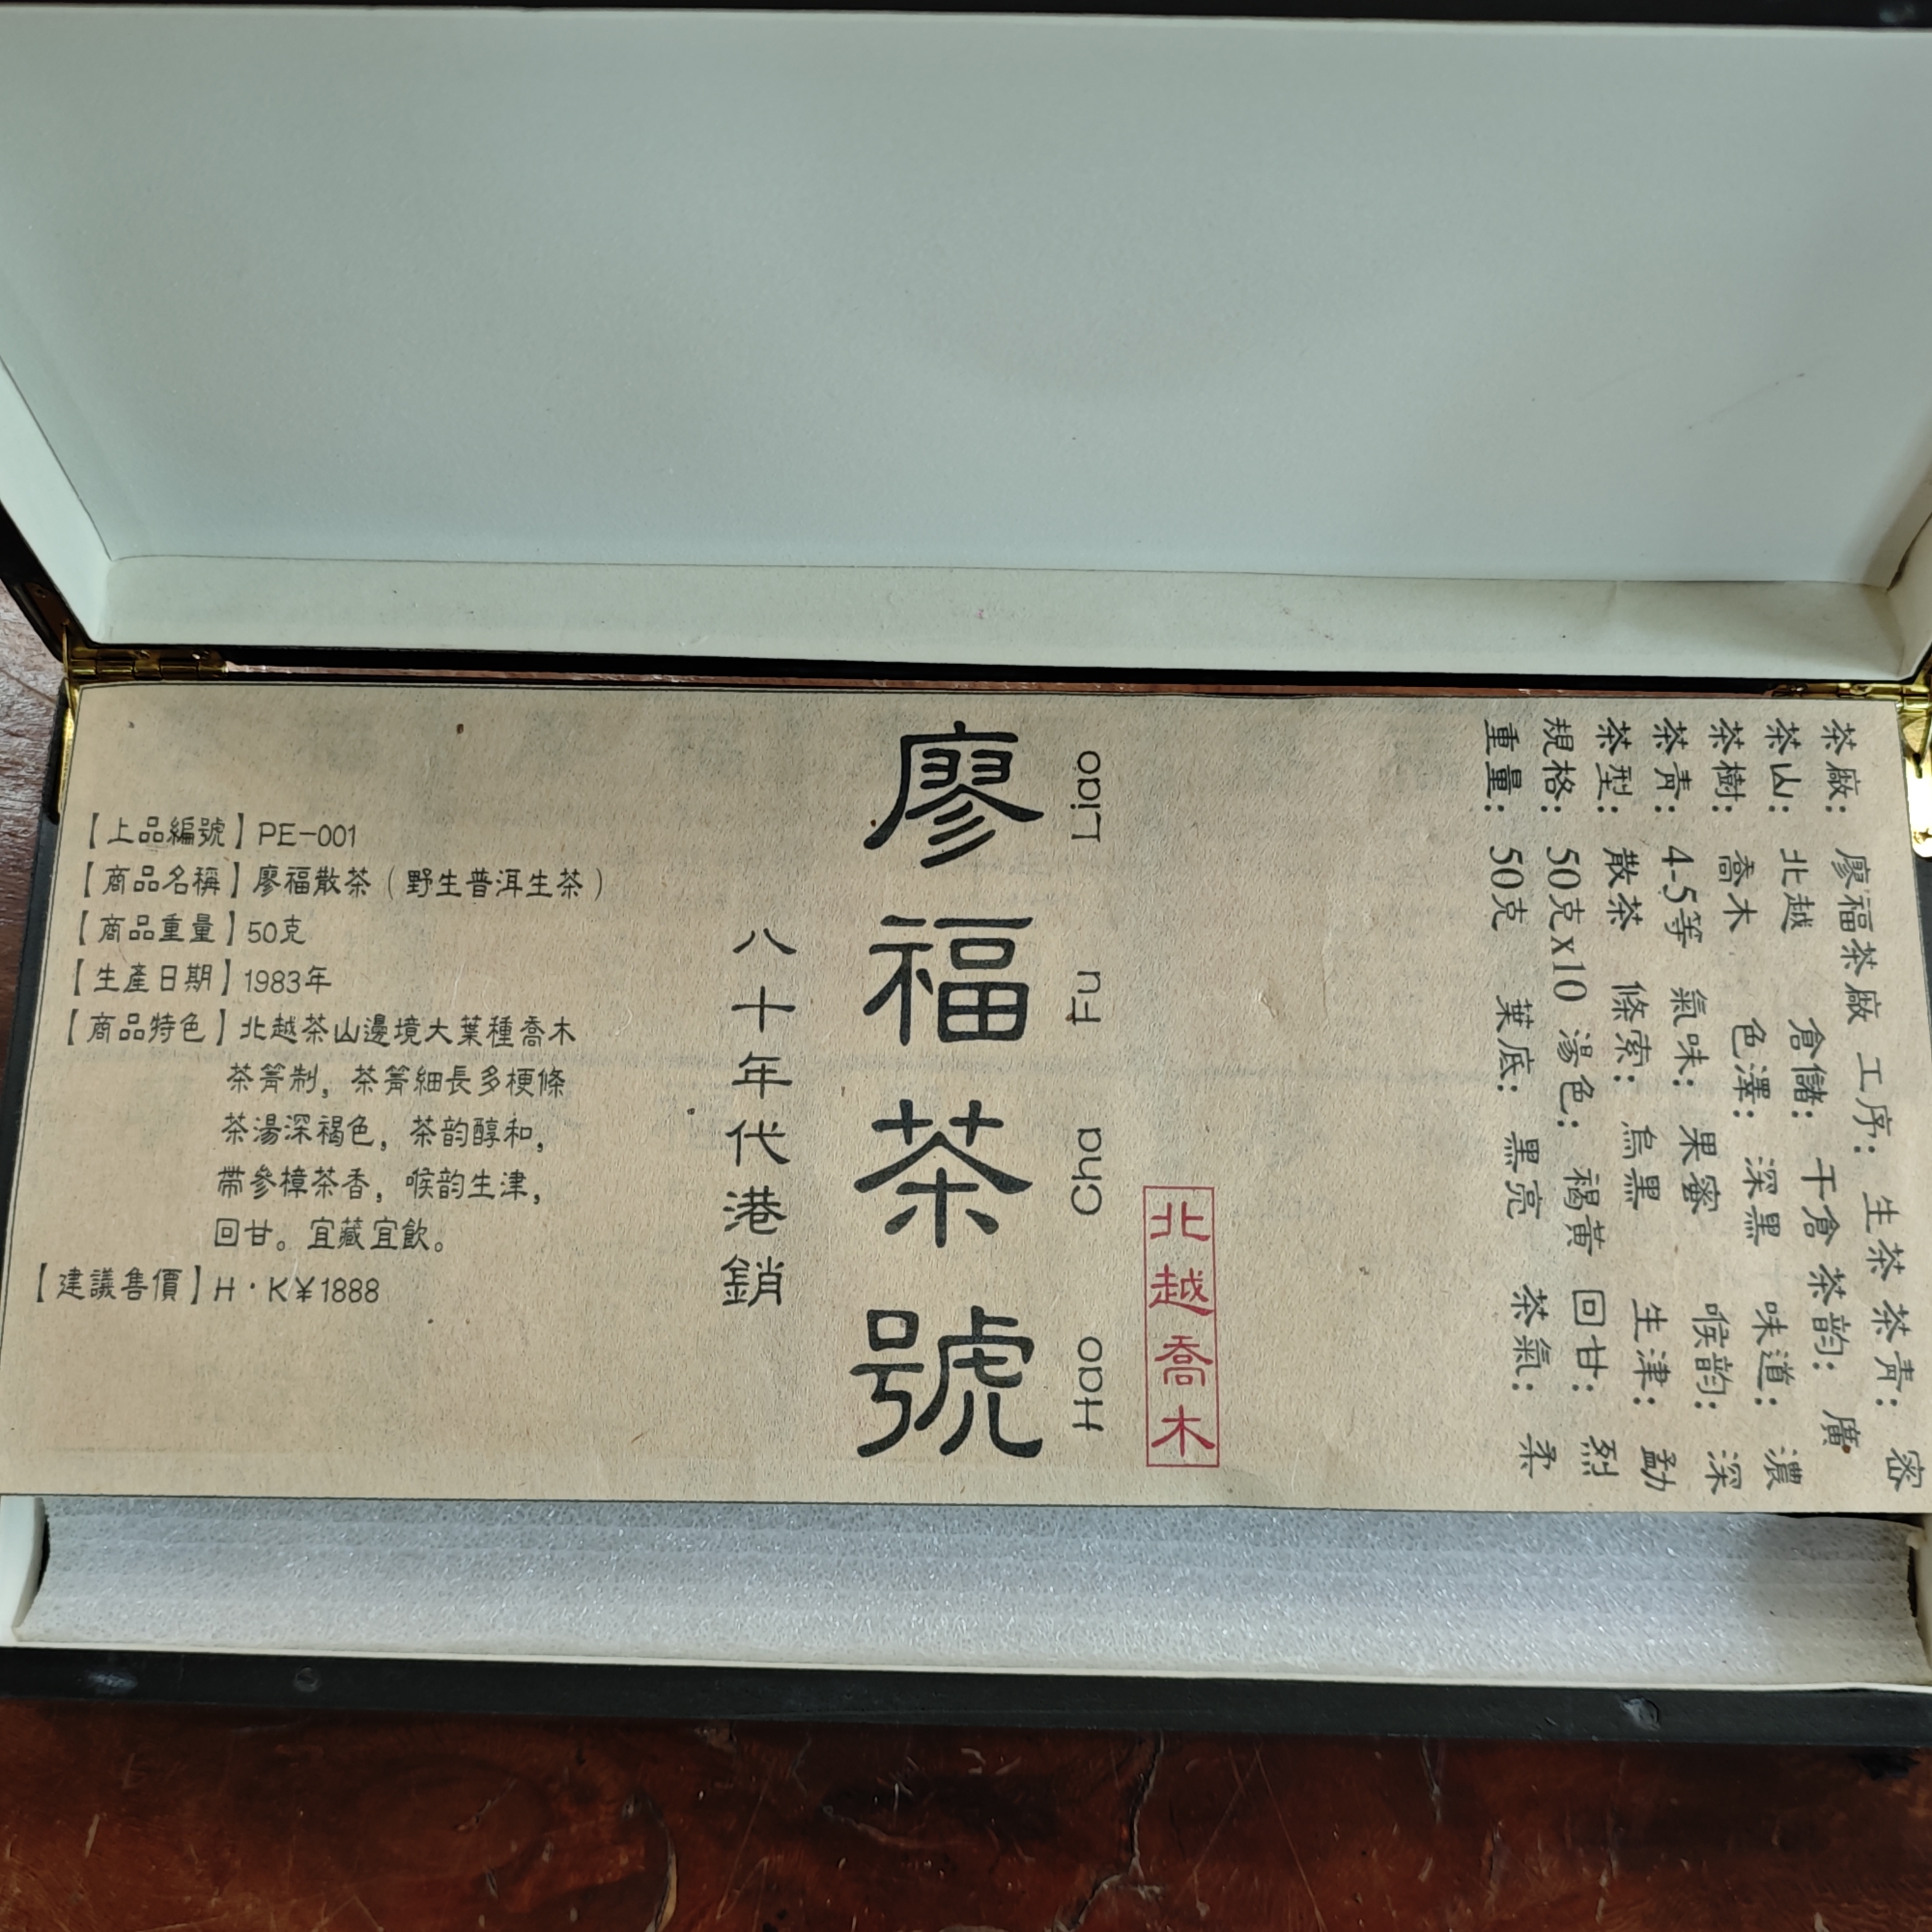 【上品編號】PE-001
【商品名稱】廖福散茶（野生普洱生茶）
【商品重量】50克
【生產日期】1983年
【商品特色】北越茶山邊境大葉種喬木
茶箐制，茶箐細長多梗條
茶湯深褐色，茶韵醇和，
帶參樟茶香，喉韵生津，
回甘。宜藏宜飲。
【建議售價】H·K¥1888
八十年代港銷
廖福茶號
Liao Fu Cha Hao
北越喬木
茶廠：廖福茶廠 工序：生茶 茶青：密
茶山：北越 倉儲：干倉 茶韵：廣
茶樹：喬木 色澤：深黑 味道：濃
茶青：4-5等 氣味：果蜜 喉韵：深
茶型：散茶 條索：烏黑 生津：勐
規格：50克x10 湯色：褐黃 回甘：烈
重量：50克 葉底：黑亮 茶氣：柔